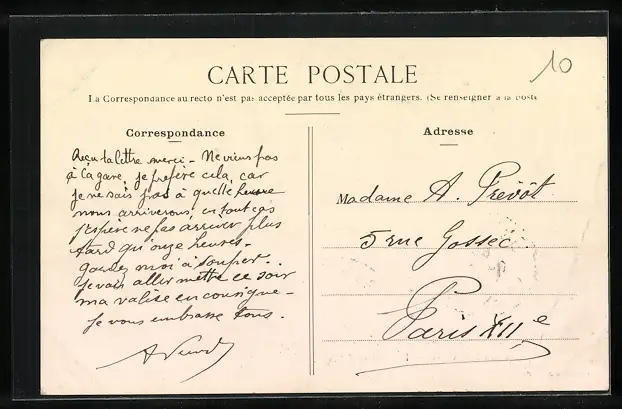 10
CARTE POSTALE
La Correspondance au recto n'est pas acceptée par tous les pays étrangers. (Se renseigner à la Poste
Correspondance
Adresse
Reçu ta lettre merci - Ne viens pas
à la gare, je préfère cela, car
je ne sais pas à quelle heure
nous arriverons, en tout cas
j'espère ne pas arriver plus
tard qu'onze heures.
gardez moi à souper.
je vais aller mettre ce soir
ma valise en consigne -
je vous embrasse tous.
Madame A. Prévôt
5 rue Gossec
Paris XIIe